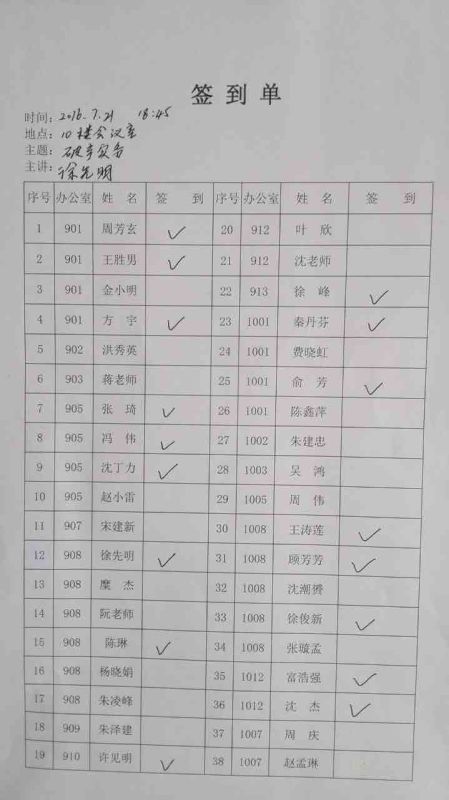 签到单
时间：2016.7.21 18:45
地点：10楼会议室
主题：破产实务
主讲：徐先明
序号 办公室 姓名 签到 序号 办公室 姓名 签到
1 901 周芳玄 ✓ 20 912 叶欣
2 901 王胜男 ✓ 21 912 沈老师
3 901 金小明 22 913 徐峰 ✓
4 901 方宇 ✓ 23 1001 秦丹芬 ✓
5 902 洪秀英 24 1001 费晓虹
6 903 蒋老师 25 1001 俞芳 ✓
7 905 张琦 ✓ 26 1001 陈鑫萍
8 905 冯伟 ✓ 27 1002 朱建忠
9 905 沈丁力 ✓ 28 1003 吴鸿
10 905 赵小雷 29 1005 周伟
11 907 宋建新 30 1008 王涛莲 ✓
12 908 徐先明 ✓ 31 1008 顾芳芳 ✓
13 908 糜杰 32 1008 沈潮赟
14 908 阮老师 33 1008 徐俊新 ✓
15 908 陈琳 ✓ 34 1008 张璇孟
16 908 杨晓娟 35 1012 富浩强 ✓
17 908 朱凌峰 36 1012 沈杰 ✓
18 909 朱泽建 37 1007 周庆
19 910 许见明 ✓ 38 1007 赵孟琳